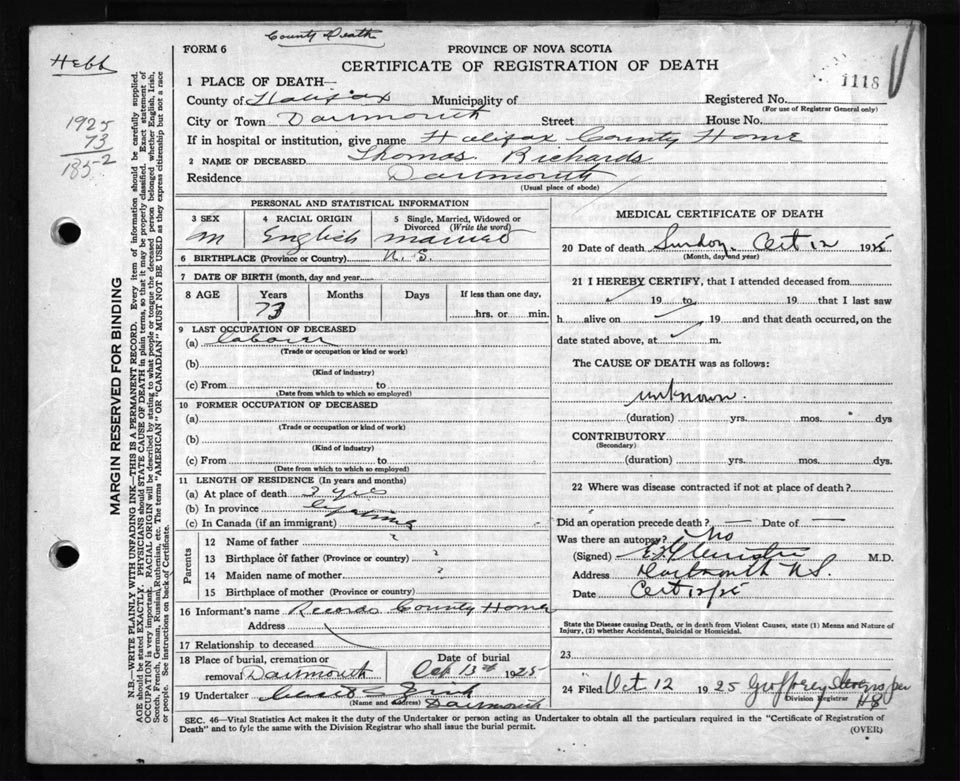 County Death
Hebb
FORM 6
PROVINCE OF NOVA SCOTIA
CERTIFICATE OF REGISTRATION OF DEATH
1118
1925
73
185-2
1 PLACE OF DEATH—
County of Halifax Municipality of Registered No.
(For use of Registrar General only)
City or Town Dartmouth Street House No.
If in hospital or institution, give name Halifax County Home
2 NAME OF DECEASED Thomas Richards
Residence Dartmouth
(Usual place of abode)
MARGIN RESERVED FOR BINDING
N.B.—WRITE PLAINLY WITH UNFADING INK—THIS IS A PERMANENT RECORD. Every item of information should be carefully supplied.
AGE should be stated EXACTLY. PHYSICIANS should STATE CAUSE OF DEATH in plain terms, so that it may be properly classified. Exact statement of
OCCUPATION is very important. RACIAL ORIGIN will be described by stating to what people or tongue the deceased person belonged whether English, Irish,
Scotch, French, German, Russian, Ruthenian, etc. The terms "AMERICAN" OR "CANADIAN" MUST NOT BE USED as they express citizenship but not a race
or people. See instructions on back of Certificate.
PERSONAL AND STATISTICAL INFORMATION
3 SEX 4 RACIAL ORIGIN 5 Single, Married, Widowed or
Divorced (Write the word)
M English married
6 BIRTHPLACE (Province or Country) N. S.
7 DATE OF BIRTH (month, day and year)
8 AGE Years Months Days If less than one day,
73 hrs. or min.
9 LAST OCCUPATION OF DECEASED
(a) labourer
(Trade or occupation or kind or work)
(b)
(Kind of industry)
(c) From to
(Date from which to which so employed)
10 FORMER OCCUPATION OF DECEASED
(a)
(Trade or occupation or kind of work)
(b)
(Kind of industry)
(c) From to
(Date from which to which so employed)
11 LENGTH OF RESIDENCE (In years and months)
(a) At place of death yrs
(b) In province lifetime
(c) In Canada (if an immigrant)
Parents
12 Name of father ?
13 Birthplace of father (Province or country) ?
14 Maiden name of mother ?
15 Birthplace of mother (Province or country)
16 Informant's name Records County Home
Address
17 Relationship to deceased
18 Place of burial, cremation or Date of burial
removal Dartmouth Oct 13th 1925
19 Undertaker
(Name and address) Dartmouth
MEDICAL CERTIFICATE OF DEATH
20 Date of death Sunday, Oct 12 1925
(Month, day and year)
21 I HEREBY CERTIFY, that I attended deceased from
19 to 19 that I last saw
h alive on 19 and that death occurred, on the
date stated above, at m.
The CAUSE OF DEATH was as follows:
unknown.
(duration) yrs. mos. dys
CONTRIBUTORY
(Secondary)
(duration) yrs. mos. dys.
22 Where was disease contracted if not at place of death?
Did an operation precede death? — Date of —
Was there an autopsy? No
(Signed) M.D.
Address Dartmouth N.S.
Date Oct 12/25
State the Disease causing Death, or in death from Violent Causes, state (1) Means and Nature of
Injury, (2) whether Accidental, Suicidal or Homicidal.
23
24 Filed Oct 12 1925 Geoffrey Stevens per
Division Registrar
HS
SEC. 46—Vital Statistics Act makes it the duty of the Undertaker or person acting as Undertaker to obtain all the particulars required in the "Certificate of Registration of
Death" and to fyle the same with the Division Registrar who shall issue the burial permit.
(OVER)